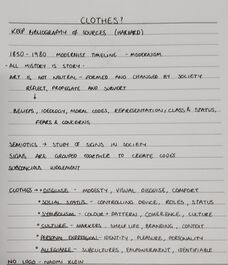 CLOTHES?
KEEP BIBLIOGRAPHY OF SOURCES (HARVARD)
1850 - 1980 MODERNISE TIMELINE - MODERNISM
- ALL HISTORY IS STORY -
ART IS NOT NEUTRAL - FORMED AND CHANGED BY SOCIETY
REFLECT, PROPAGATE AND SUPPORT
↓
BELIEFS, IDEOLOGY, MORAL CODES, REPRESENTATION, CLASS & STATUS,
FEARS & CONCERNS
SEMIOTICS → STUDY OF SIGNS IN SOCIETY
SIGNS ARE GROUPED TOGETHER TO CREATE CODES
SUBCONCIOUS JUDGEMENT
CLOTHES → * DISGUISE - MODESTY, VISUAL DISGUISE, COMFORT
* SOCIAL STATUS - CONTROLLING DEVICE, ROLES, STATUS
* SYMBOLISM - COLOUR + PATTERN, COHERENCE, CULTURE
* CULTURE - MARKERS, SHELF LIFE, BRANDING, CONTEXT
* PERSONAL EXPRESSION - IDENTITY, PLEASURE, PERSONALITY
* ALLEGIANCE - SUBCULTURES, EMPOWERMENT, IDENTIFIABLE
NO LOGO - NAOMI KLEIN